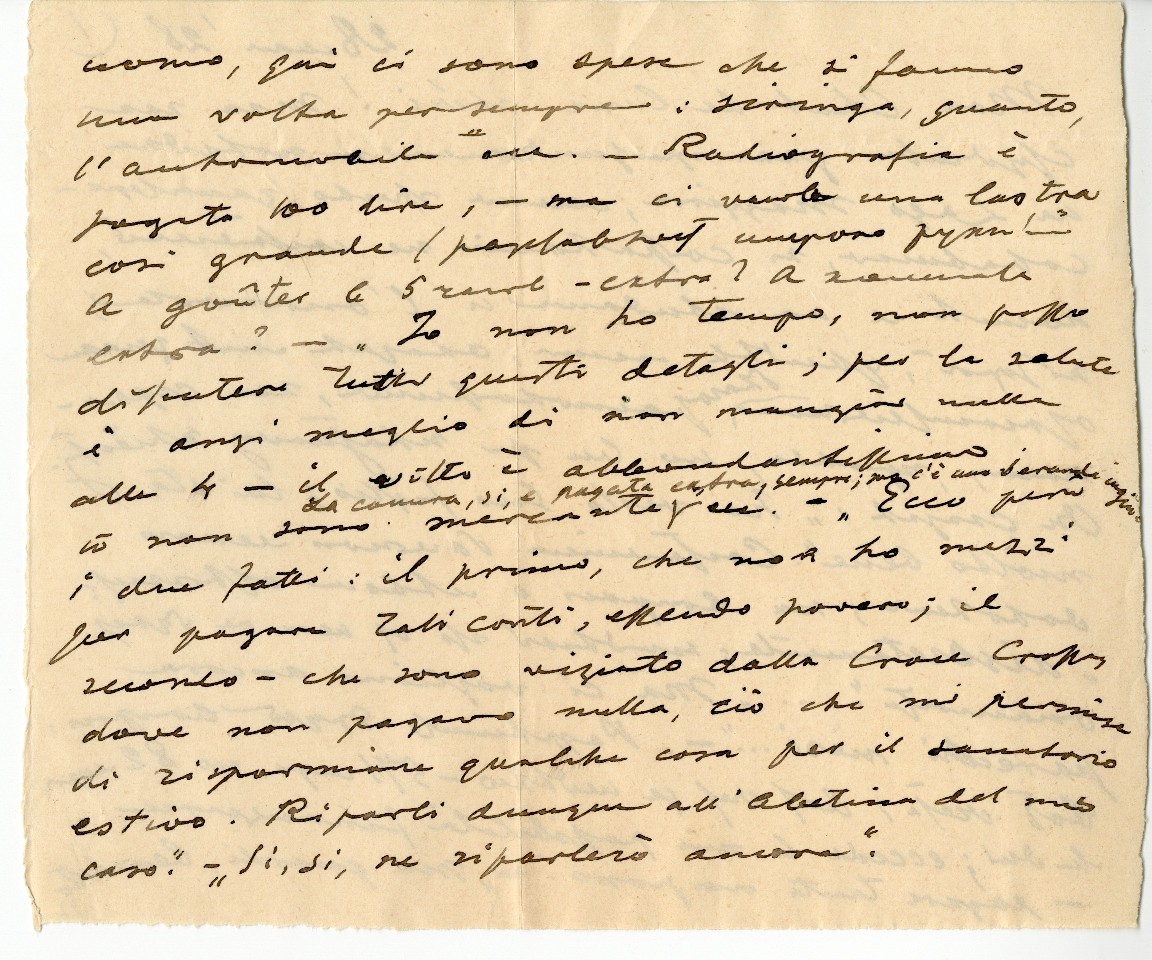 uomo, qui ci sono spese che si fanno
una volta per sempre: siringa, guanto,
l'automobile" ecc. — Radiografia è
pagata 100 lire, — ma ci vuole una lastra
così grande (
A goûter le 5 — extra? A
extra? — „Io non ho tempo, non posso
disputere tutti questi detagli; per la salute
è anzi meglio di non mangiar nulla
alle 4 — il vitto è abbondantissimo
La camera, sì, è pagata extra, sempre; ma c'è una veranda
io non sono mercante" ecc. — „Ecco però
i due fatti: il primo, che non ho mezzi
per pagare tali conti, essendo povero; il
secondo — che sono viziato dalla Croce Rossa,
dove non pagavo nulla, ciò che mi permise
di risparmiare qualche cosa per il sanatorio
estivo. Riparli dunque all'Abetina del mio
caso." — „Sì, sì, ne riparlerò ancora".